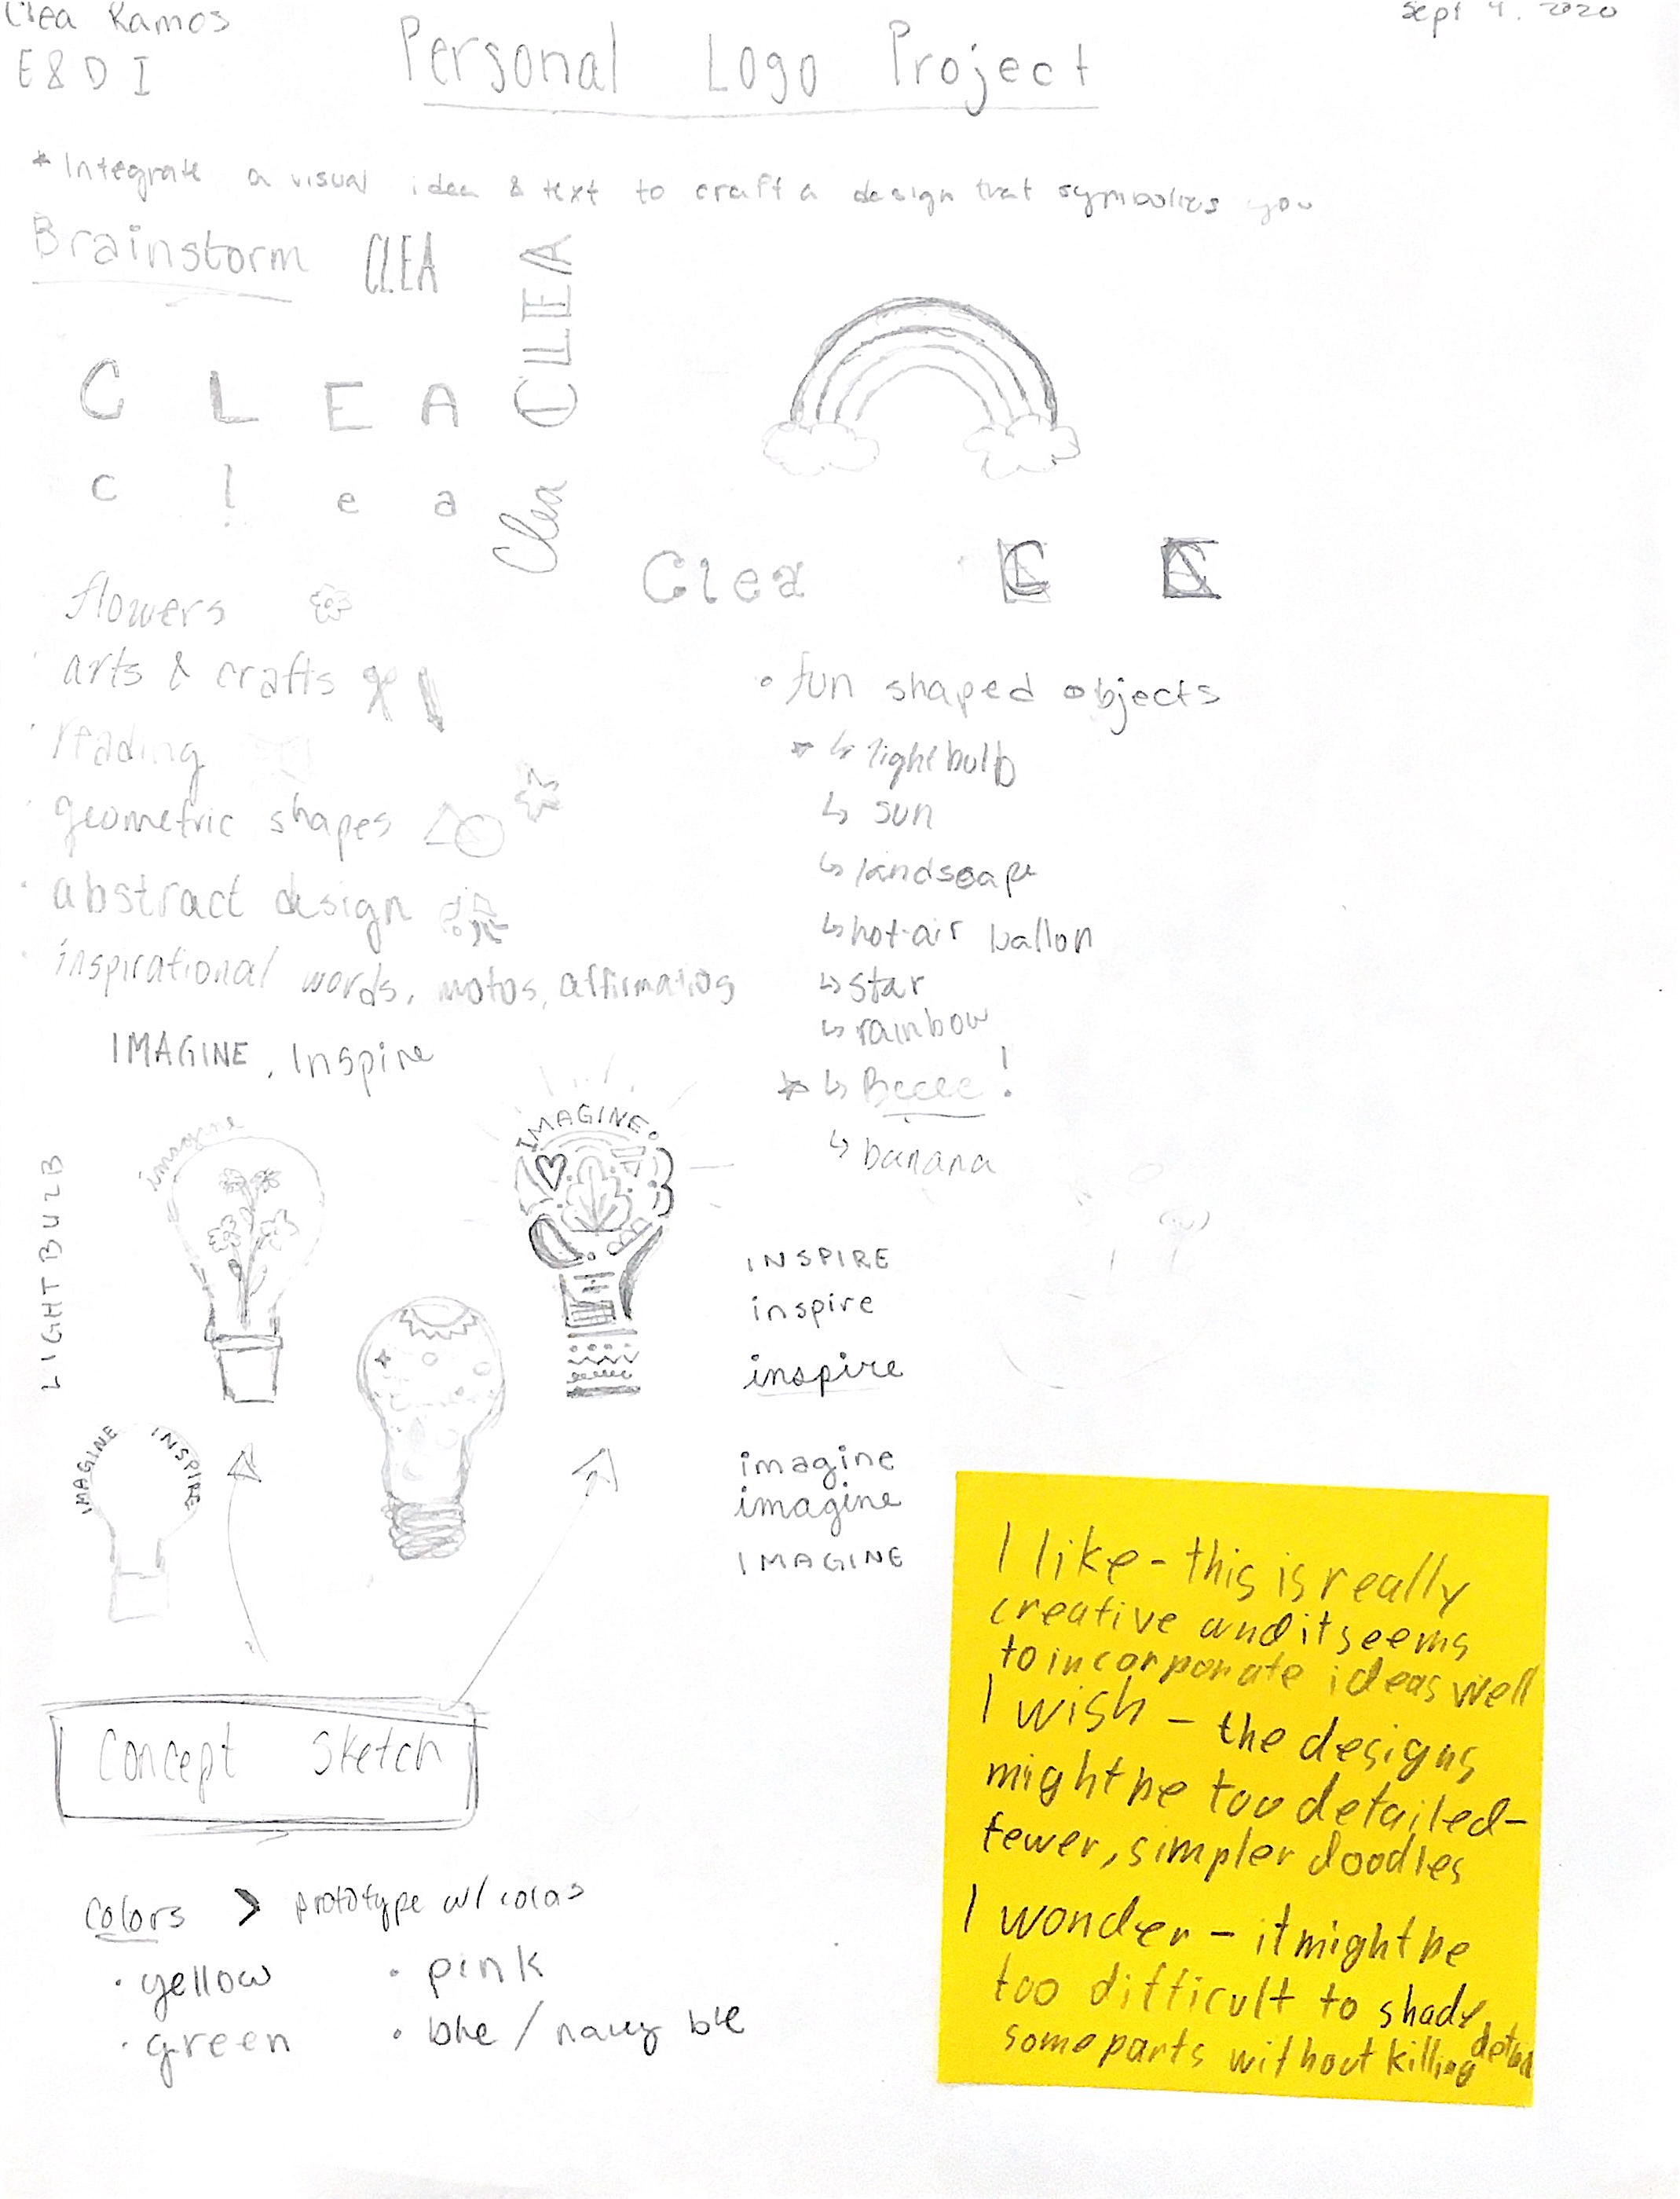 Clea Ramos
Sept 4. 2020
E&D I
Personal Logo Project
* Integrate a visual idea & text to craft a design that symbolizes you
Brainstorm
CLEA
CLEA
Clea
C L E A
c l e a
Clea
C
flowers
· arts & crafts
· reading
· geometric shapes
· abstract design
· inspirational words, motos, affirmatios
IMAGINE, Inspire
• fun shaped objects
* ↳ lightbulb
↳ sun
↳ landscape
↳ hot-air ballon
↳ star
↳ rainbow
* ↳ Beeee!
↳ banana
LIGHTBULB
imagine
IMAGINE
IMAGINE
INSPIRE
INSPIRE
inspire
inspire
imagine
imagine
IMAGINE
Concept Sketch
Colors > prototype w/ colas
· yellow
· green
· pink
· blue / navy ble
I like - this is really
creative and it seems
to incorporate ideas well
I wish - the designs
might be too detailed-
fewer, simpler doodles
I wonder - it might be
too difficult to shade
some parts without killing detail